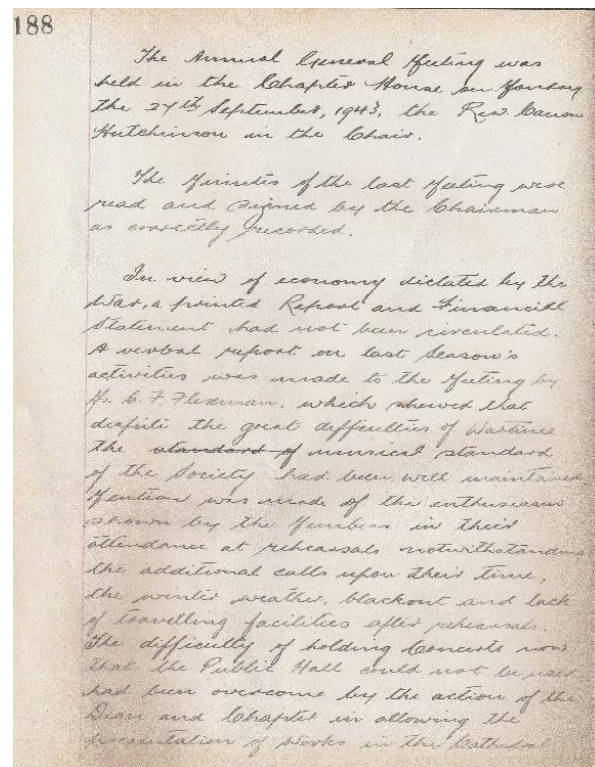 188
The Annual General Meeting was
held in the Chapter House on Monday
the 27th September, 1943, the Rev. Canon
Hutchinson in the Chair.
The Minutes of the last Meeting were
read and signed by the Chairman
as correctly recorded.
In view of economy dictated by the
War, a printed Report and Financial
Statement had not been circulated.
A verbal report on last Season's
activities was made to the Meeting by
Mr. C. F. Flexman, which shewed that
despite the great difficulties of Wartime
the standard of musical standard
of the Society had been well maintained
Mention was made of the enthusiasm
shown by the Members in their
attendance at rehearsals notwithstanding
the additional calls upon their time,
the winter weather, blackout and lack
of travelling facilities after rehearsals.
The difficulty of holding Concerts now
that the Public Hall could not be used
had been overcome by the action of the
Dean and Chapter in allowing the
presentation of Works in the Cathedral